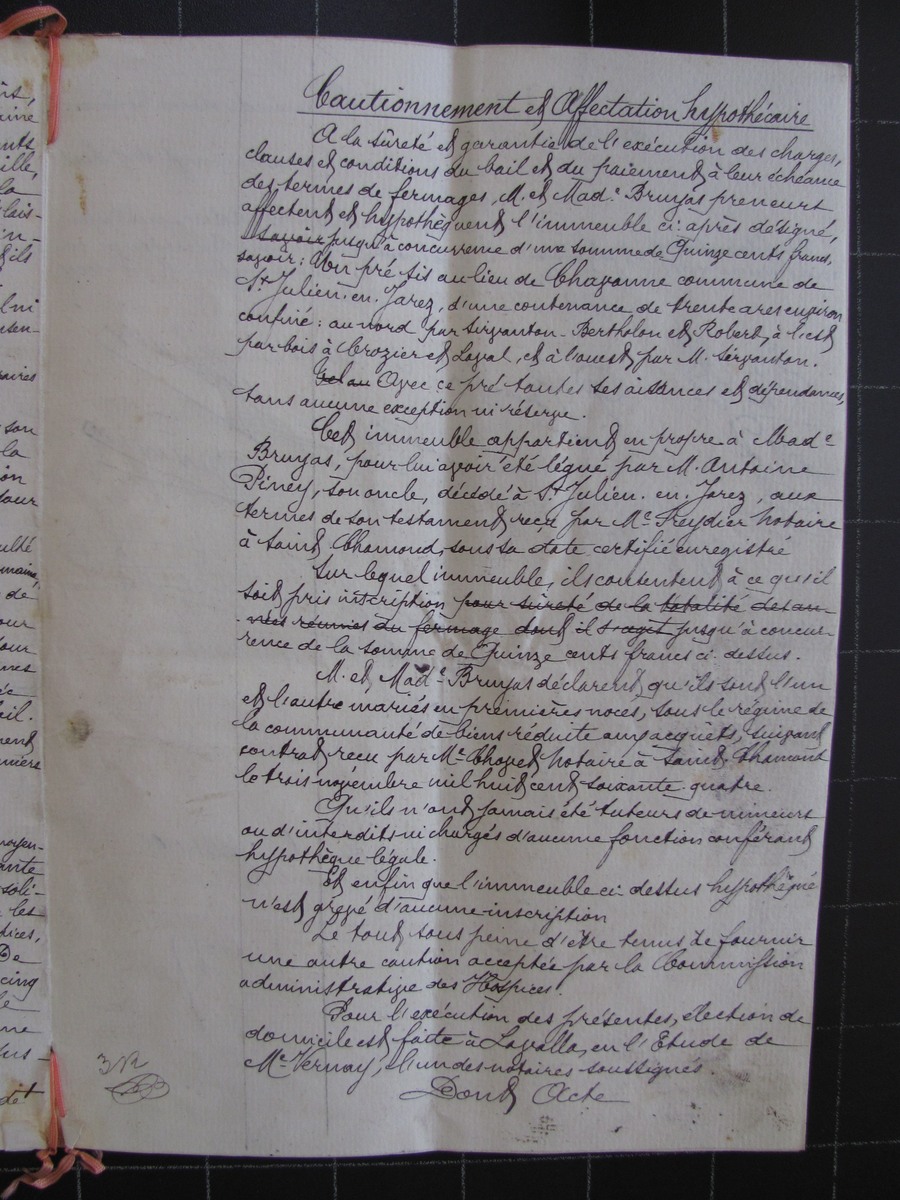 Cautionnement et Affectation hypothécaire
A la sûreté et garantie de l'exécution des charges,
clauses et conditions du bail et du paiement à leur échéance
des termes de fermages, M. et Made Bruyas preneurs
affectent et hypothèquent l'immeuble ci-après désigné,
savoir jusqu'à concurrence d'une somme de Quinze cents francs,
savoir: Un pré sis au lieu de Chavanne commune de
St Julien-en-Jarez, d'une contenance de trente ares environ
confiné: au nord par Sirvanton-Berthelon et Robert, à l'est
par bois à Crozier et Loyal, et à l'ouest par M. Sirvanton.
Avec ce pré toutes ses aisances et dépendances,
sans aucune exception ni réserve.
Cet immeuble appartient en propre à Made
Bruyas, pour lui avoir été légué par M. Antoine
Piney, son oncle, décédé à St Julien-en-Jarez, aux
termes de son testament reçu par Me Freydier notaire
à Saint Chamond, sous sa date, certifié enregistré
Sur lequel immeuble, ils consentent à ce qu'il
soit pris inscription pour sûreté de la totalité des an-
nées réunies du fermage dont il s'agit jusqu'à concur-
rence de la somme de Quinze cents francs ci-dessus.
M. et Made Bruyas déclarent qu'ils sont l'un
et l'autre mariés en premières noces, sous le régime de
la communauté de biens réduite aux acquêts, suivant
contrat reçu par Me Chovet notaire à Saint Chamond
le trois novembre mil huit cent soixante-quatre.
Qu'ils n'ont jamais été tuteurs de mineurs
ou d'interdits ni chargés d'aucune fonction conférant
hypothèque légale.
Et enfin que l'immeuble ci-dessus hypothéqué
n'est grevé d'aucune inscription
Le tout sous peine d'être tenus de fournir
une autre caution acceptée par la Commission
administrative des Hospices.
Pour l'exécution des présentes, élection de
domicile est faite à Lavalla, en l'Etude de
Me Vernay, l'un des notaires soussignés.
Dont Acte